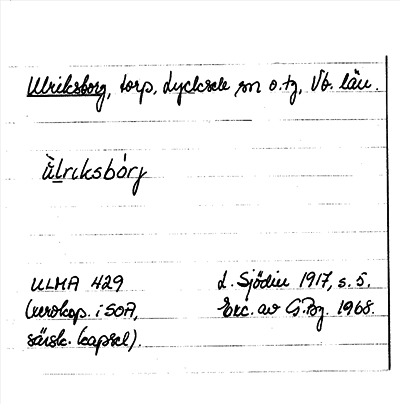 Ulriksborg, torp, Lycksele sn o. tg, Vb. län.
Ùlriksbórj
ULMA 429
(xerokop. i SOA,
särsk. kapsel).
L. Sjödin 1917, s. 5.
Exc. av G. Bg. 1968.